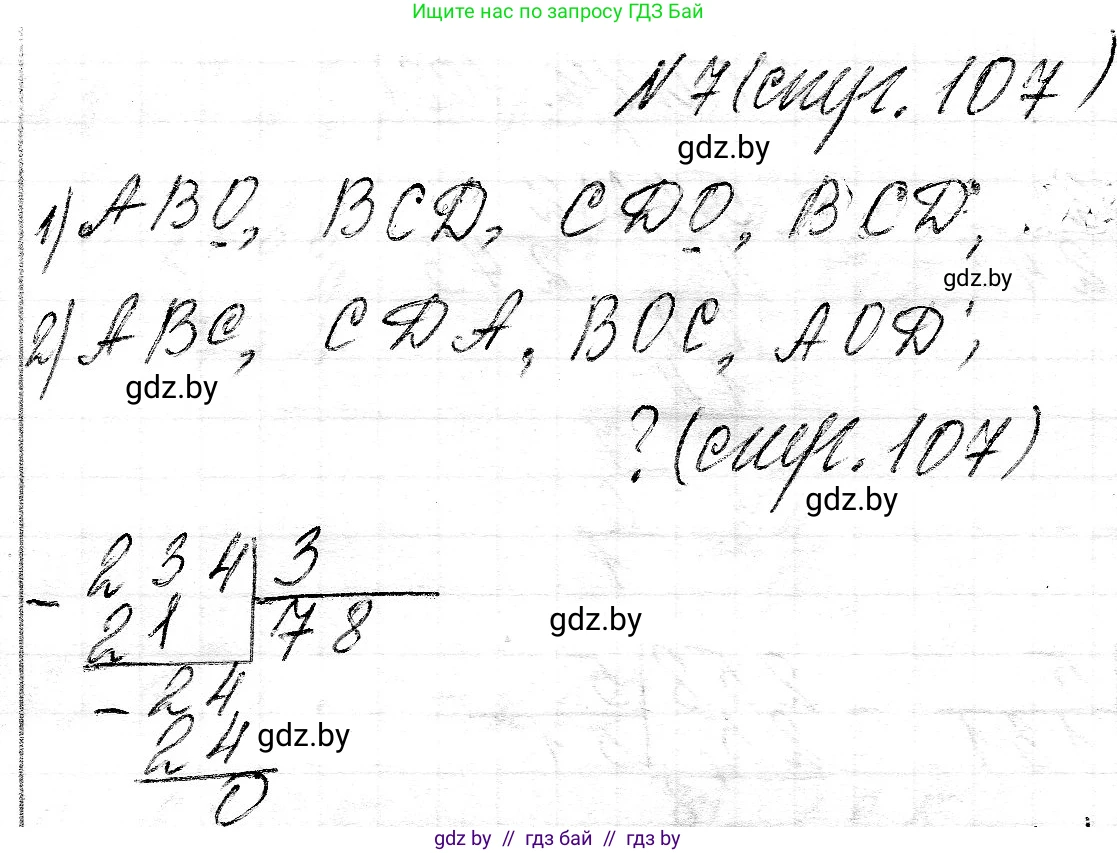 Ищите нас по запросу ГДЗ Бай
N 7 (стр. 107)
gdz.by
1) ABO, BCD, CDO, BCD;
gdz.by
2) ABC, CDA, BOC, AOD;
gdz.by
? (стр. 107)
gdz.by
234 3
- 21 78
gdz.by
- 24
24
gdz.by
0
gdz by // гдз бай // gdz by